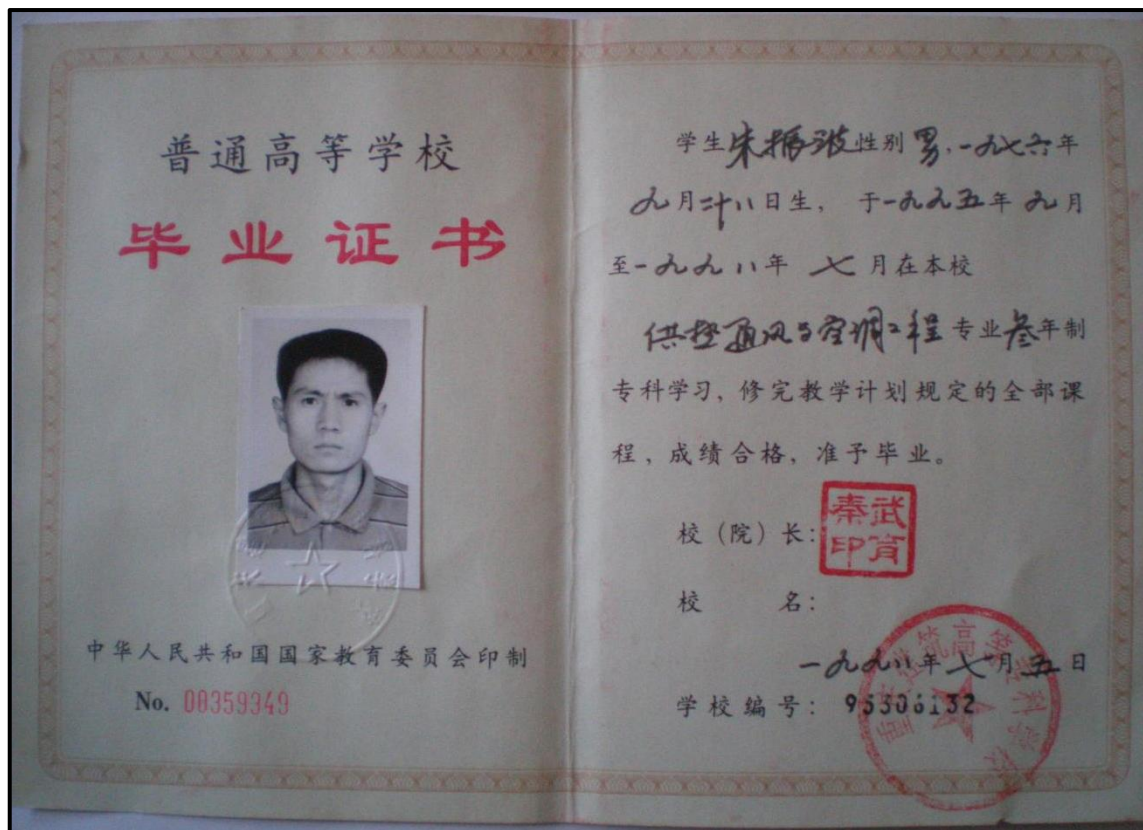 普通高等学校
毕业证书
中华人民共和国国家教育委员会印制
No. 00359349
学生宋振波性别男,一九七六年
九月二十八日生, 于一九九五年九月
至一九九八年 七月在本校
供热通风与空调工程专业叁年制
专科学习, 修完教学计划规定的全部课
程, 成绩合格, 准予毕业。
校(院)长:
秦武
印育
校 名:
建筑高等专科学校
一九九八年七月五日
学校编号: 95306132